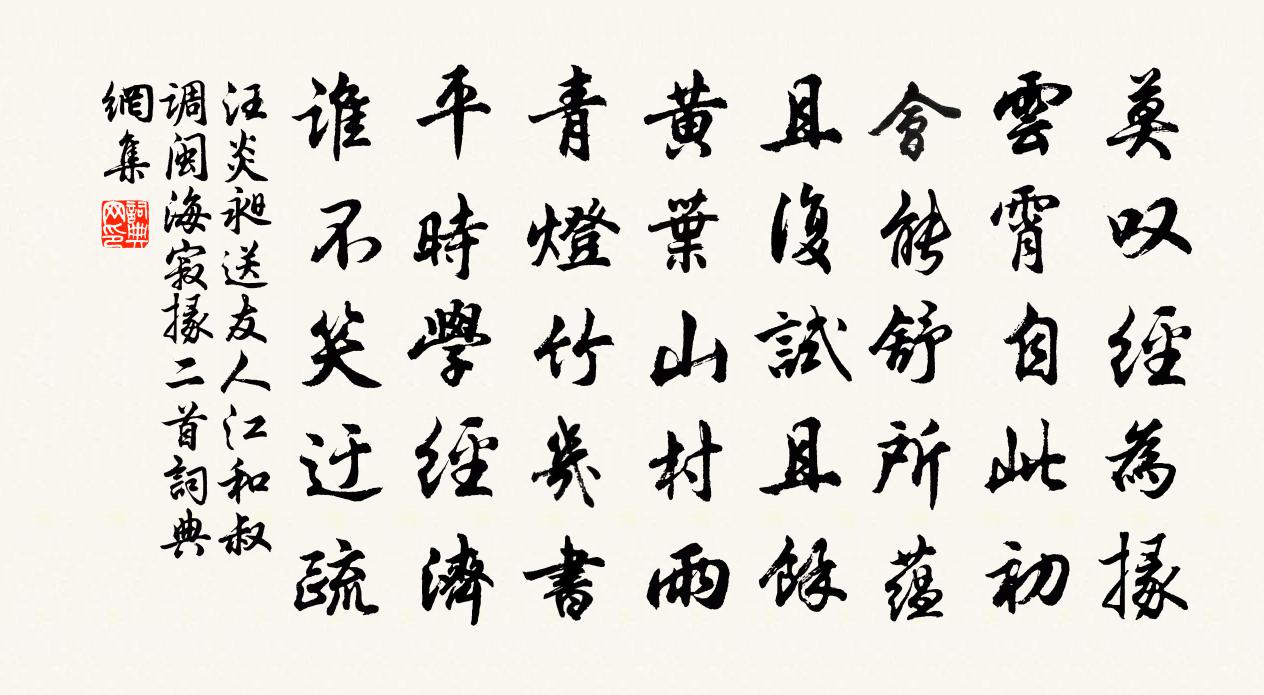 莫叹經為掾
雲霄自此初
會能舒所蘊
且復試且餘
黃葉山村雨
青燈竹幾書
平時學經濟
誰不笑迂疏
汪炎昶送友人江和叔
调闽海寂掾二首詞典
網集